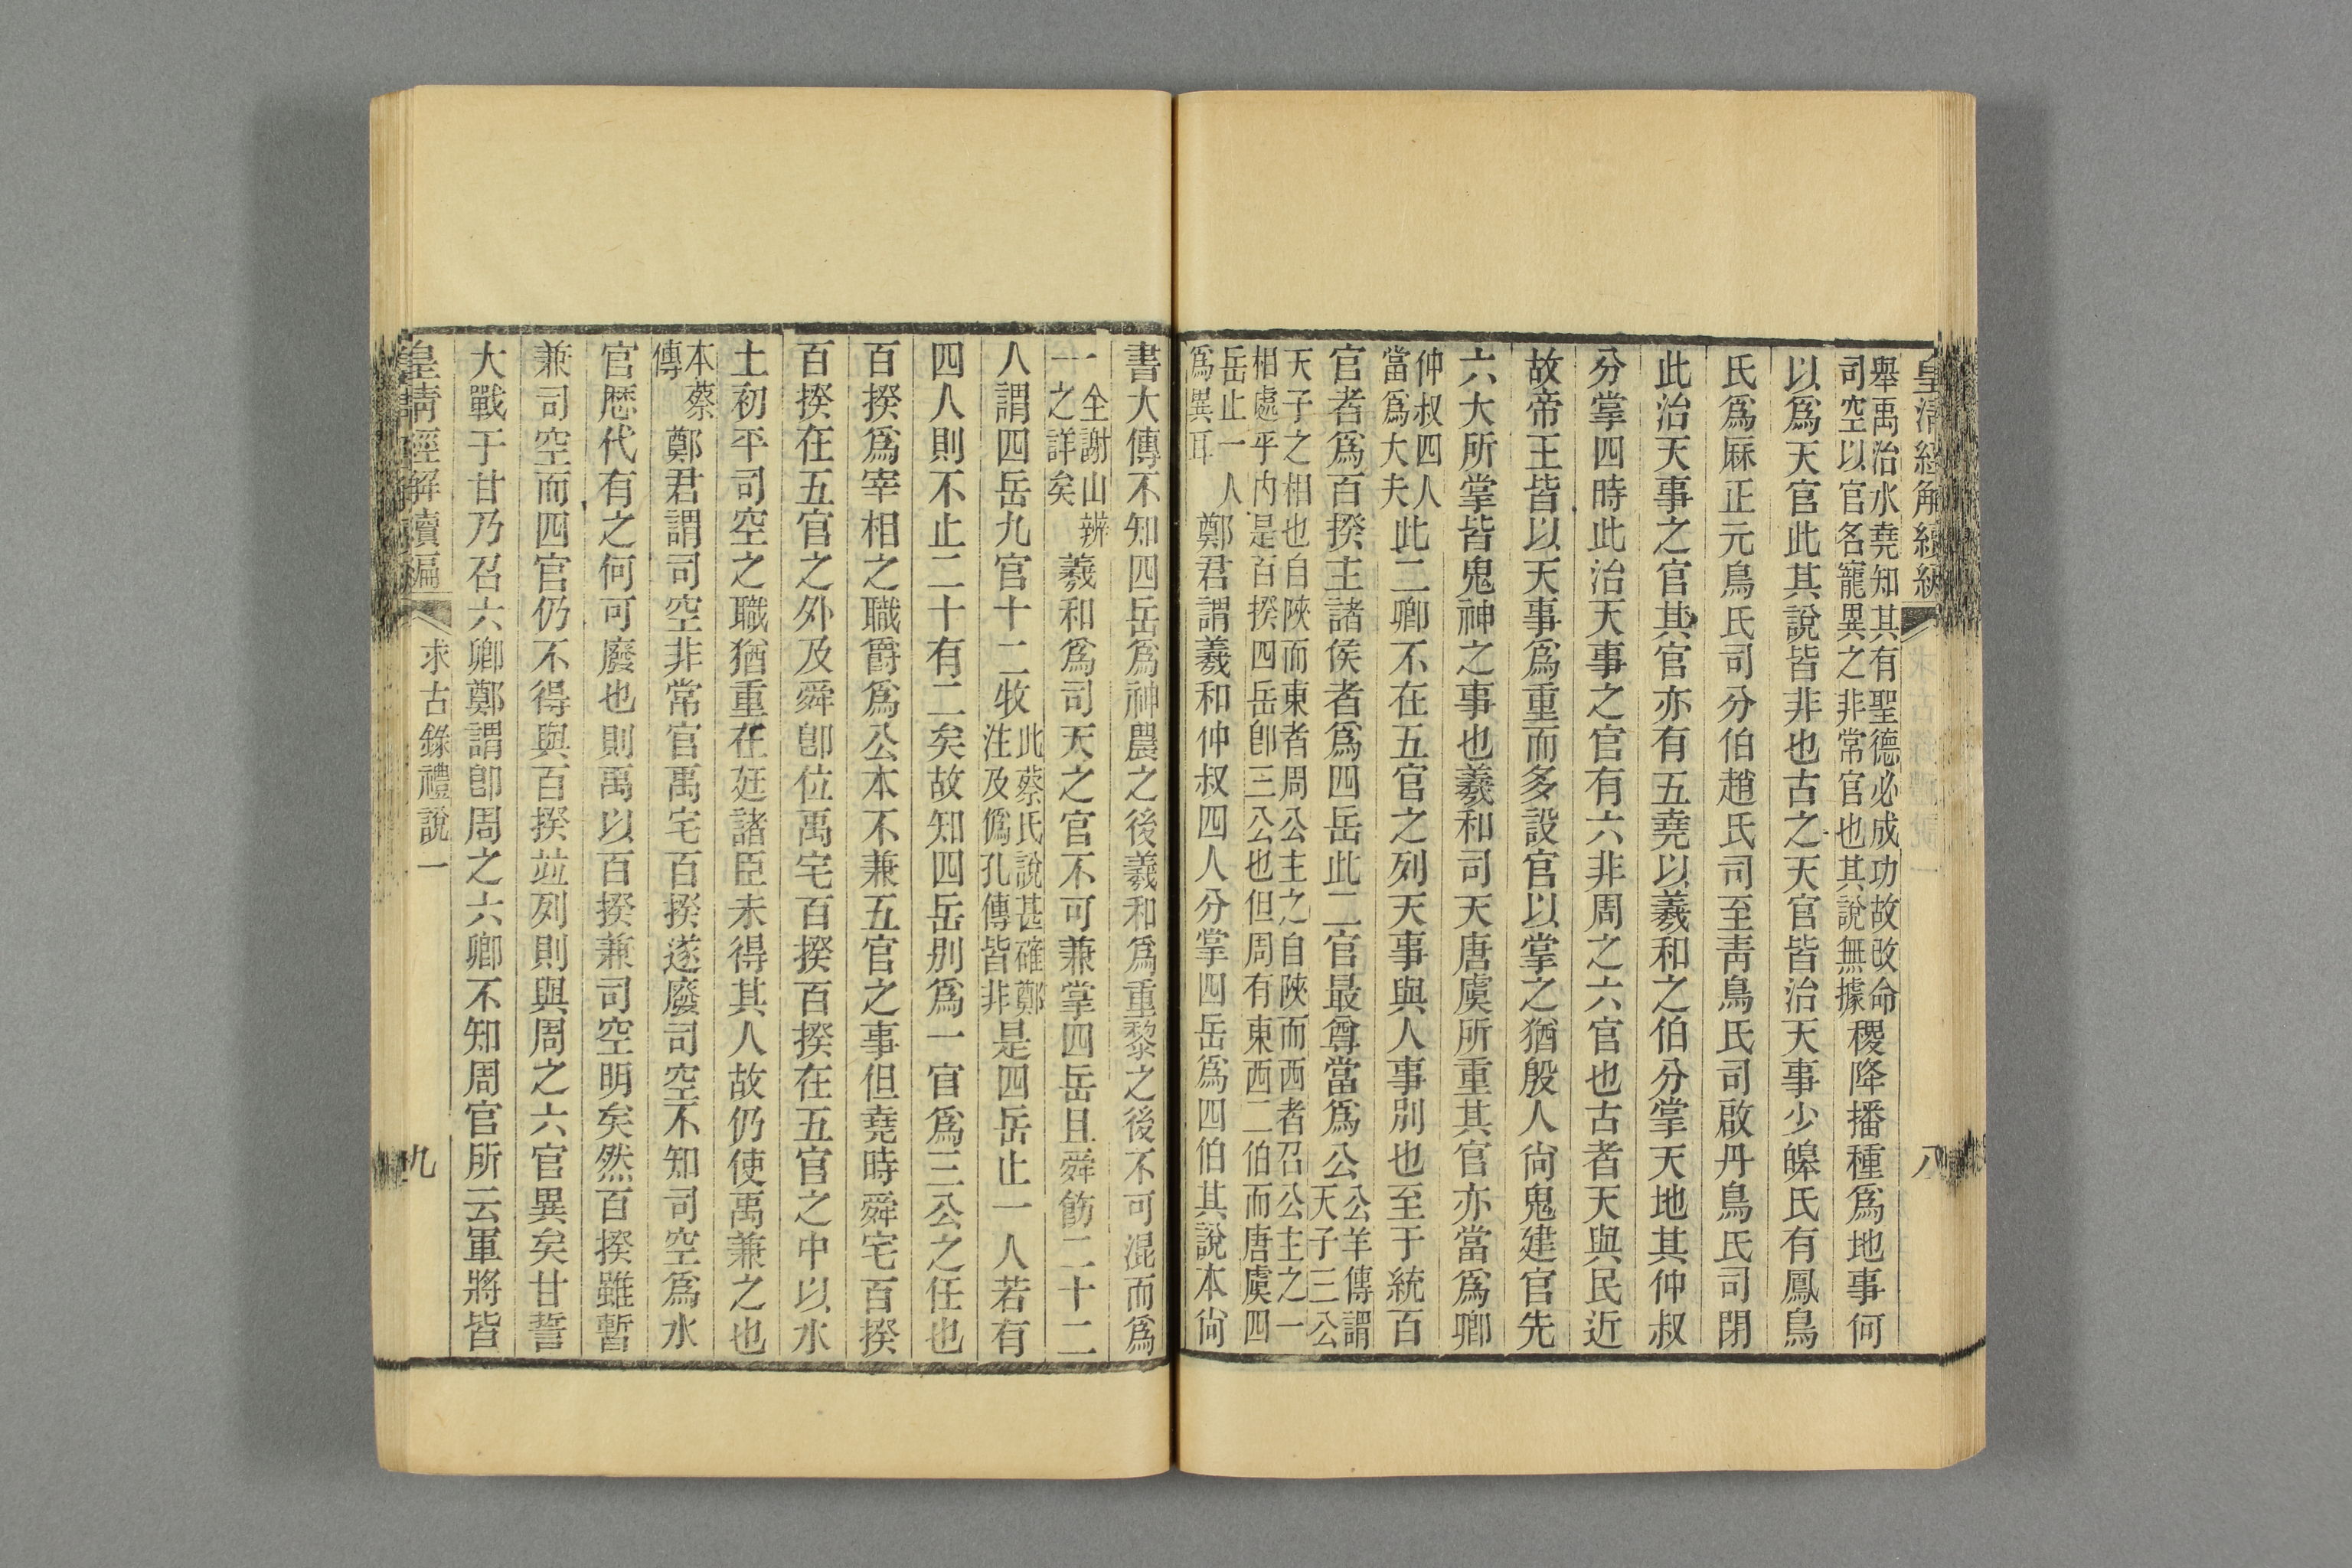 皇清經解續編
八
舉禹治水堯知其有聖德必成功故改命
司空以官名寵異之非常官也其說無據
稷降播種爲地事何
以爲天官此其說皆非也古之天官皆治天事少皞氏有鳳鳥
氏爲厤正元鳥氏司分伯趙氏司至靑鳥氏司啟丹鳥氏司閉
此治天事之官其官亦有五堯以羲和之伯分掌天地其仲叔
分掌四時此治天事之官有六非周之六官也古者天與民近
故帝王皆以天事爲重而多設官以掌之猶殷人尙鬼建官先
六大所掌皆鬼神之事也羲和司天唐虞所重其官亦當爲卿
仲叔四人
當爲大夫
此二卿不在五官之列天事與人事別也至于統百
官者爲百揆主諸侯者爲四岳此二官最尊當爲公
公羊傳謂
天子三公
天子之相也自陝而東者周公主之自陝而西者召公主之一
相處乎內是百揆四岳卽三公也但周有東西二伯而唐虞四
岳止一人
爲異耳
鄭君謂羲和仲叔四人分掌四岳爲四伯其說本尙
書大傳不知四岳爲神農之後羲和爲重黎之後不可混而爲
一
全謝山辨
之詳矣
羲和爲司天之官不可兼掌四岳且舜飭二十二
人謂四岳九官十二牧
此蔡氏說甚確鄭
注及僞孔傳皆非
是四岳止一人若有
四人則不止二十有二矣故知四岳別爲一官爲三公之任也
百揆爲宰相之職爵爲公本不兼五官之事但堯時舜宅百揆
百揆在五官之外及舜卽位禹宅百揆百揆在五官之中以水
土初平司空之職猶重在廷諸臣未得其人故仍使禹兼之也
本蔡
傳
鄭君謂司空非常官禹宅百揆遂廢司空不知司空爲水
官歷代有之何可廢也則禹以百揆兼司空明矣然百揆雖暫
兼司空而四官仍不得與百揆竝列則與周之六官異矣甘誓
大戰于甘乃召六卿鄭謂卽周之六卿不知周官所云軍將皆
皇清經解續編
求古錄禮說一
九